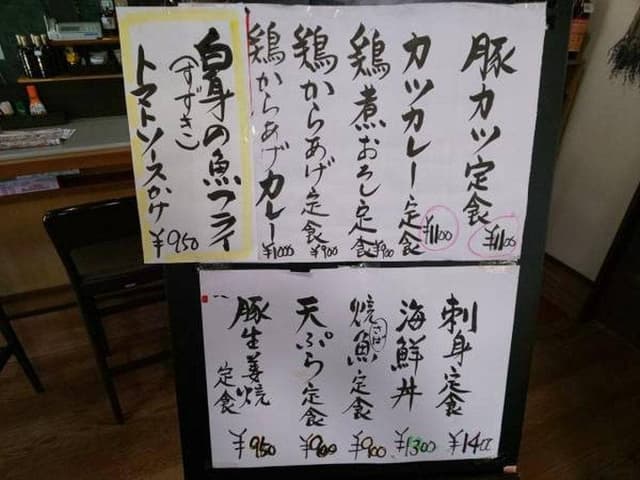 豚カツ定食 ¥1100
カツカレー定食 ¥1100
鶏煮おろし定食 ¥900
鶏からあげ定食 ¥900
鶏からあげカレー ¥1000
白身の魚フライ
(すずき)
トマトソースかけ ¥950
刺身定食 ¥1400
海鮮丼 ¥1300
焼魚(さば)定食 ¥900
天ぷら定食 ¥900
豚生姜焼定食 ¥950